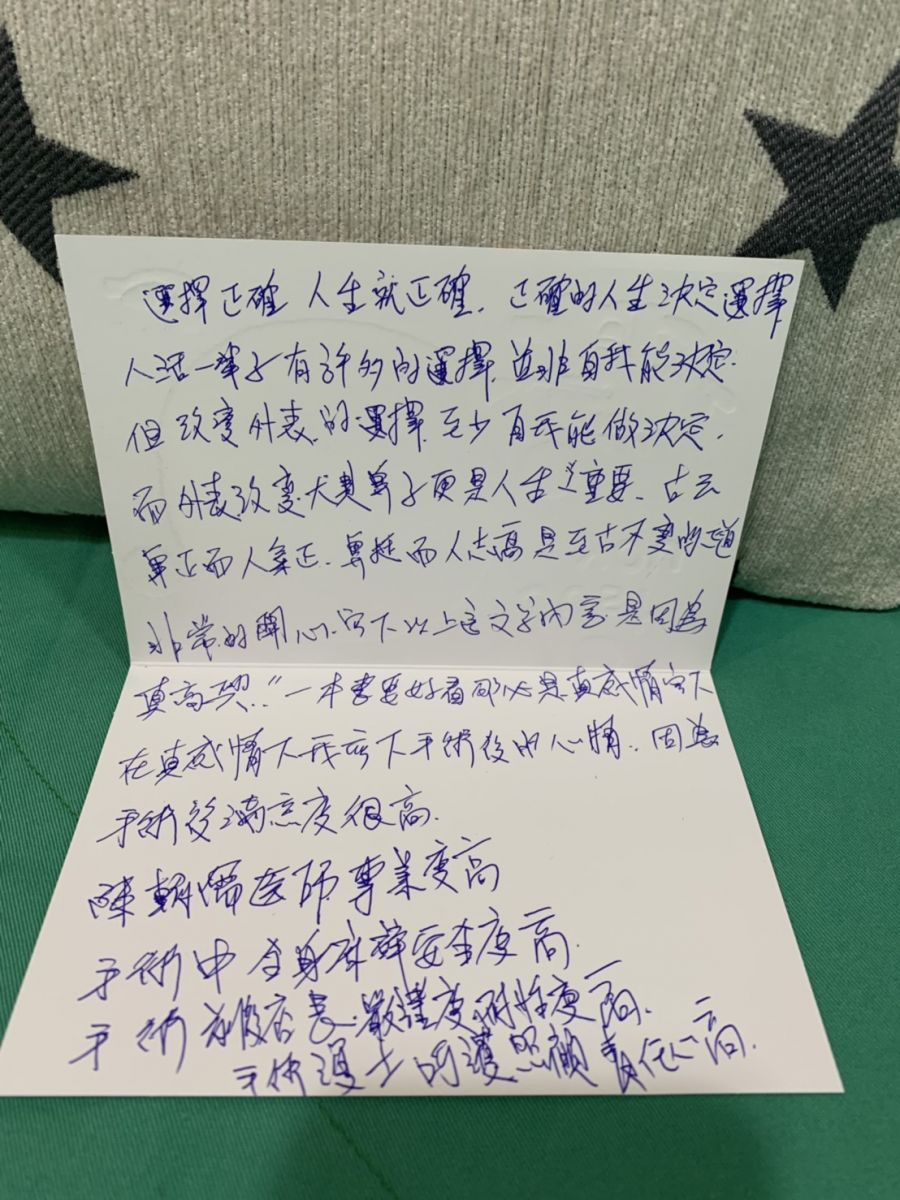 選擇正確 人生就正確. 正確的人生決定選擇
人活一輩子有許多的選擇, 並非自我能決定.
但改變外表的選擇, 至少自我能做決定,
而外表改變尤其鼻子更是人生之重要. 古云
鼻正而人氣正. 鼻挺而人志高 是至古不變的道
非常的開心. 寫下以上這文字內容 是因為
真高興!! 一本書要好看那必是真感情寫下
在真感情下我寫下手術後的心情. 因為
手術後滿意度很高.
陳朝 医師 專業度高
手術中 全身麻醉安全度高.
手術 店長 嚴謹度 耐性度高.
手術護士 呵護照顧 責任心高.